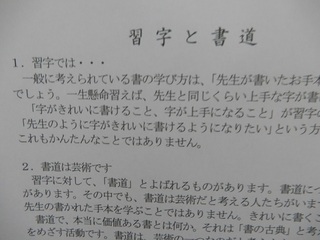 習字と書道
１．習字では・・・
一般に考えられている書の学び方は、「先生が書いたお手本
でしょう。一生懸命習えば、先生と同じくらい上手な字が書
「字がきれいに書けること、字が上手になること」が習字の
「先生のように字がきれいに書けるようになりたい」という方
これもかんたんなことではありません。
２．書道は芸術です
習字に対して、「書道」とよばれるものがあります。書道につ
があります。その中でも、書道は芸術だと考える人たちがいます
先生の書かれた手本を学ぶことではありません。きれいに書くこ
書道で、本当に価値ある書とは何か。それは「書の古典」と考え
をめざす活動です。書道は、芸術の一つなのです